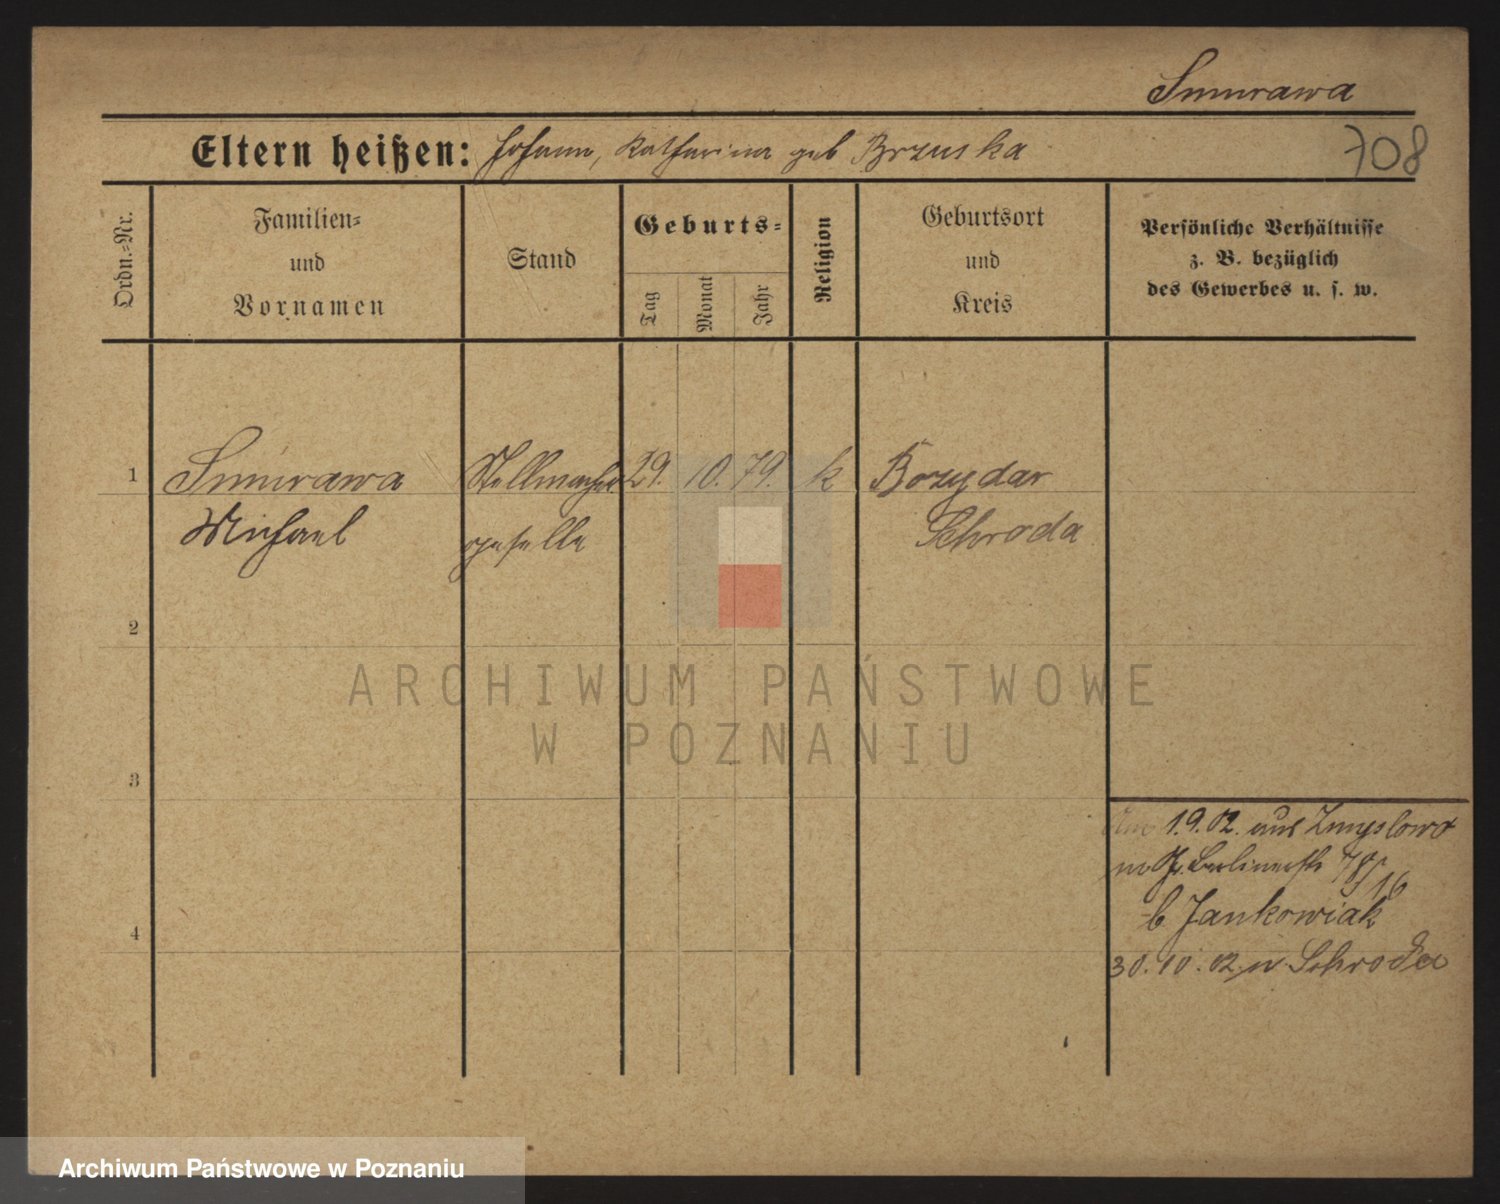 Smurawa
Eltern heißen: Johann, Katharina geb Brzuska
708
Ordn.-Nr.
Familien-
und
Vornamen
Stand
Geburts-
Tag
Monat
Jahr
Religion
Geburtsort
und
Kreis
Persönliche Verhältnisse
z. B. bezüglich
des Gewerbes u. s. w.
1
Smurawa
Michael
Stellmacher
geselle
29.
10.
79.
k
Bozydar
Schroda
2
3
4
1.9.02. aus Zmyslowo
Berlinerstr
16
b Jankowiak
30.10.02. n. Schroda
ARCHIWUM PAŃSTWOWE
W POZNANIU
Archiwum Państwowe w Poznaniu